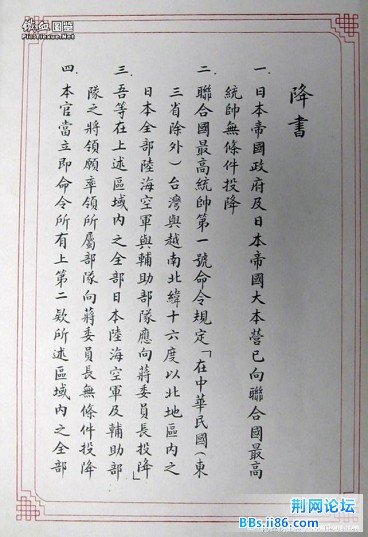 铁血图库
PicTure.tiexue.net
降書
一. 日本帝國政府及日本帝國大本營已向聯合國最高
統帥無條件投降
二. 聯合國最高統帥第一號命令規定「在中華民國(東
三省除外)台灣與越南北緯十六度以北地區内之
日本全部陸海空軍與輔助部隊應向蔣委員長投降」
三. 吾等在上述區域内之全部日本陸海空軍及輔助部
隊之將領願率領所屬部隊向蔣委員長無條件投降
四. 本官當立即命令所有上第二欵所述區域内之全部
荆网论坛
BBs.ii86.com